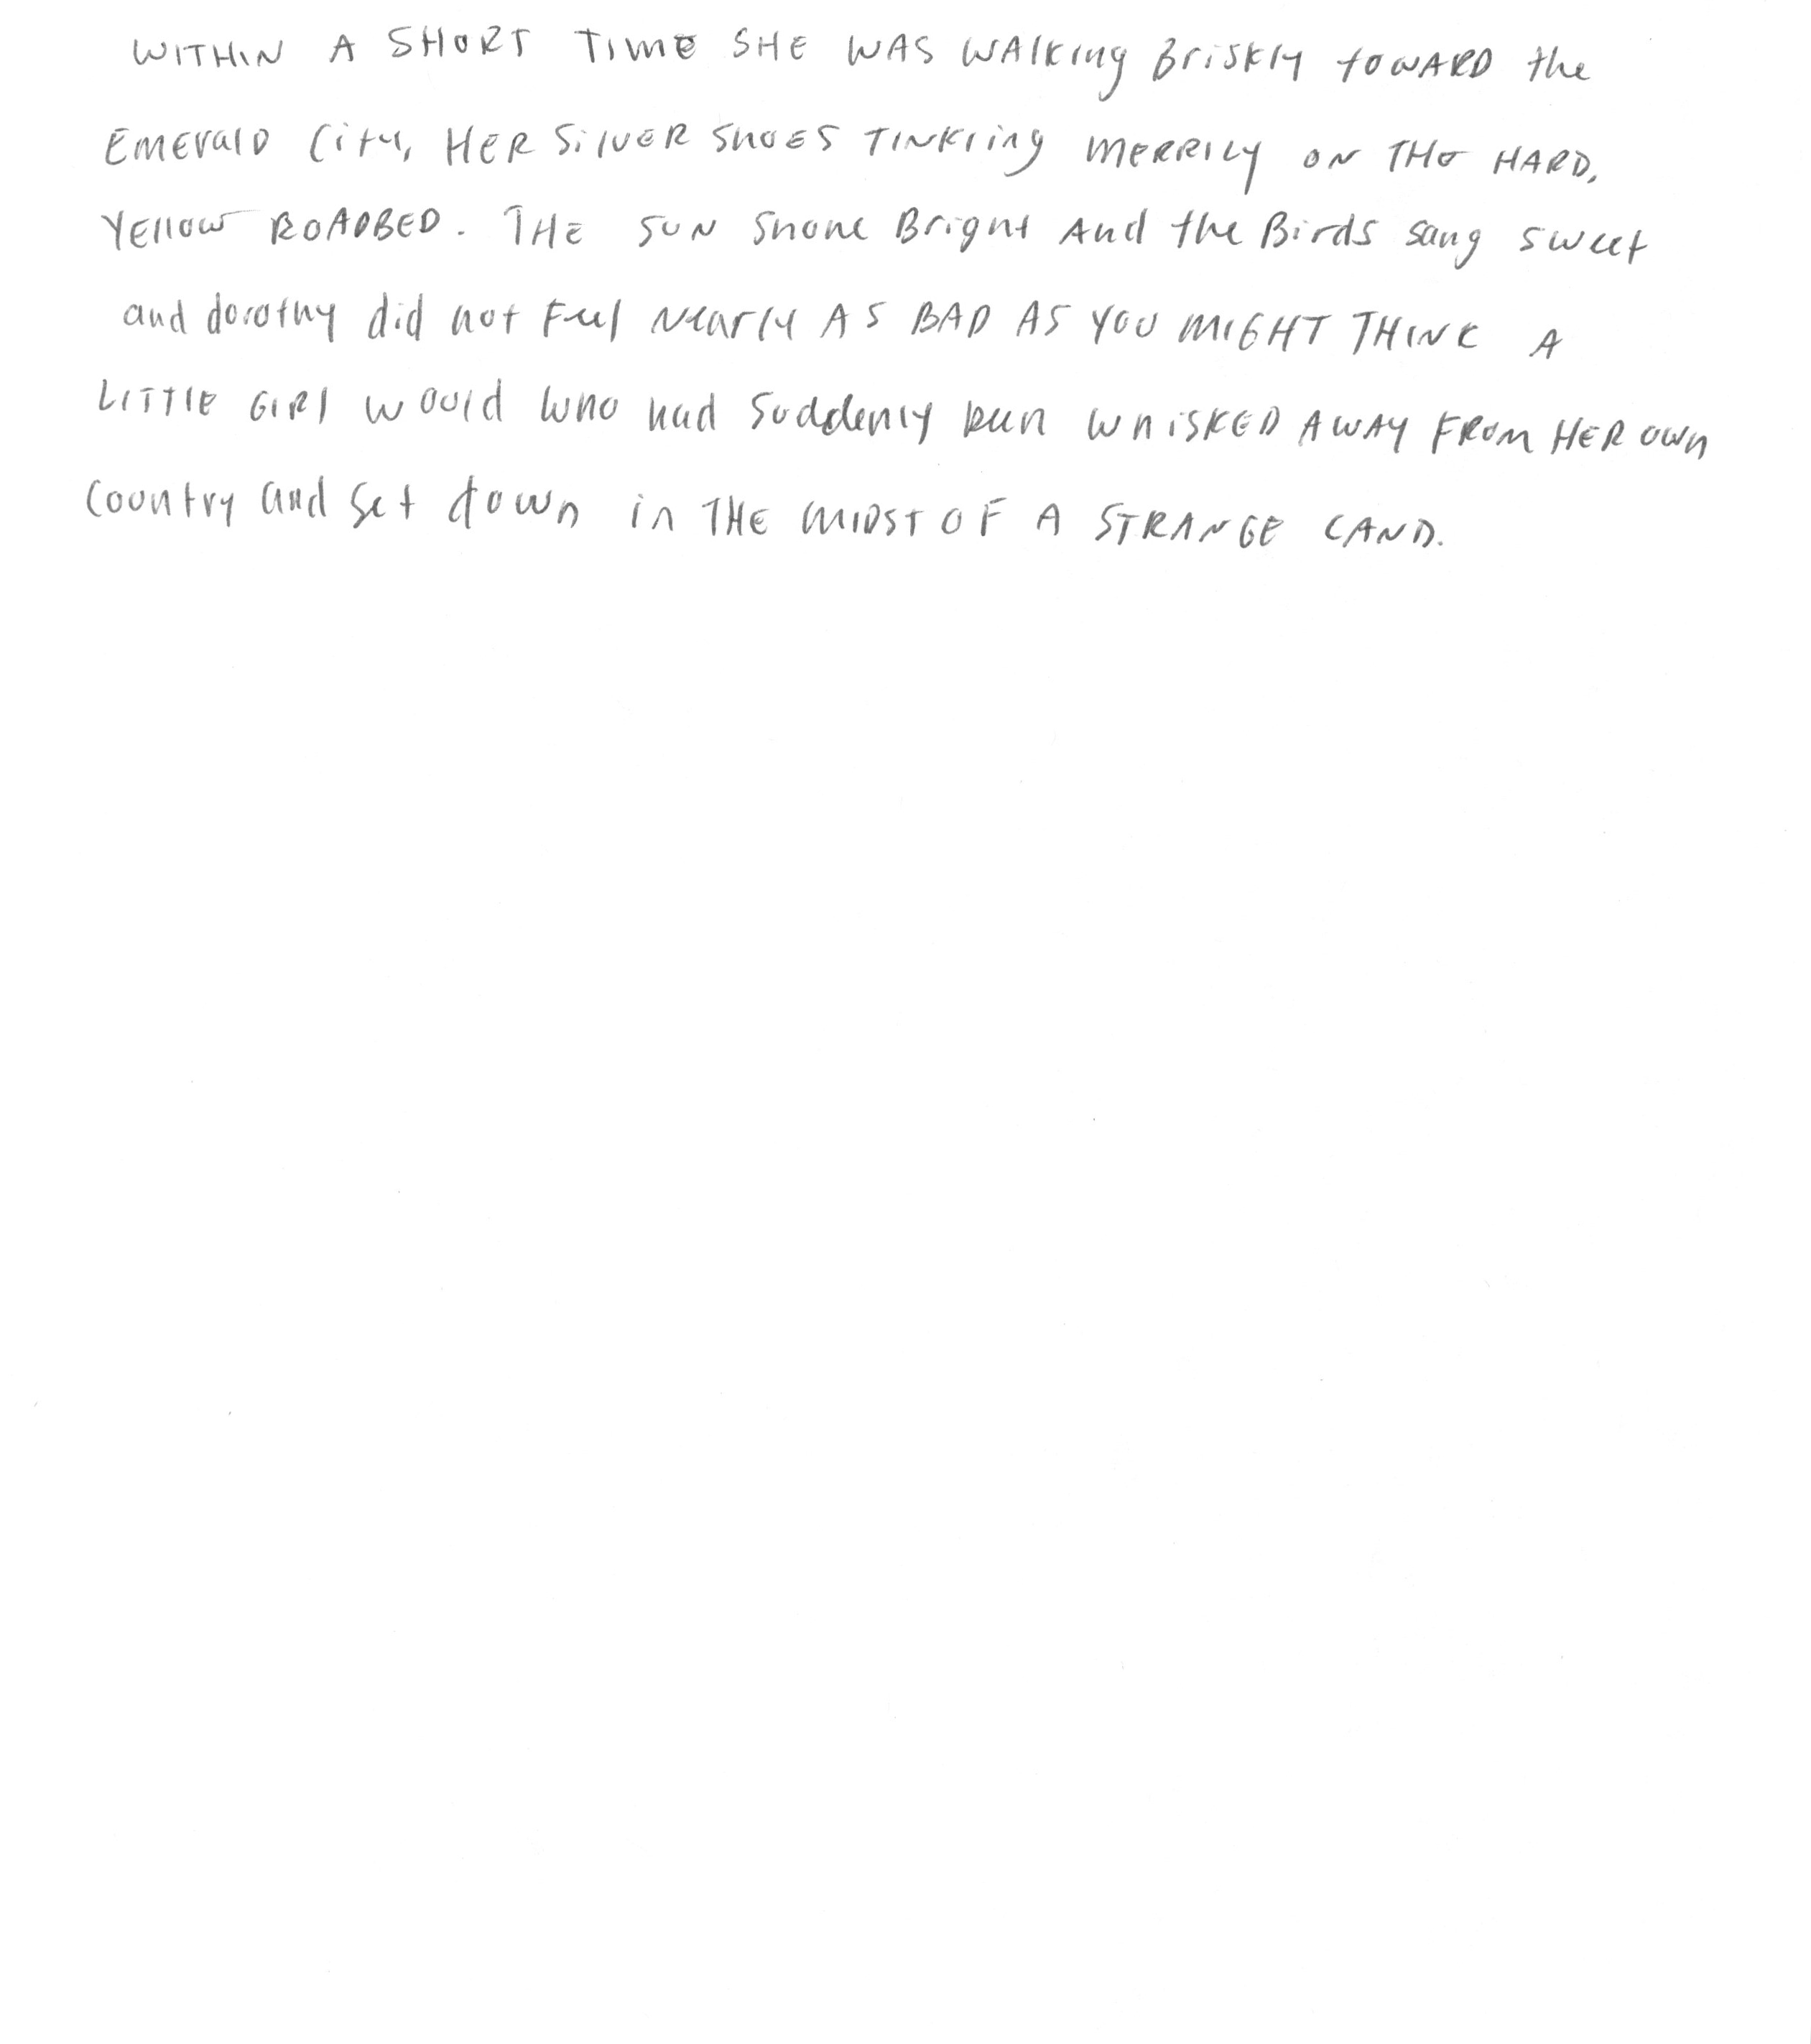 WITHIN A SHORT TIME SHE WAS WALKing Briskly toWARD the
EMERalD City, HER SilVER SHOES TINKling MERRILY ON THE HARD,
YEllow ROADBED. THE SUN Shone Bright And the Birds sang sweet
and dorothy did not Feel Nearly AS BAD AS YOU MIGHT THINK A
LITTlE GIRl would who had Suddenly been WhiSKED AWAY FROM HER OWn
Country and Set down in THE MIDST OF A STRANGE LAND.